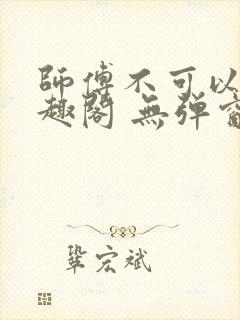 師傅不可以
趣閣 無彈窗
鞏宏斌